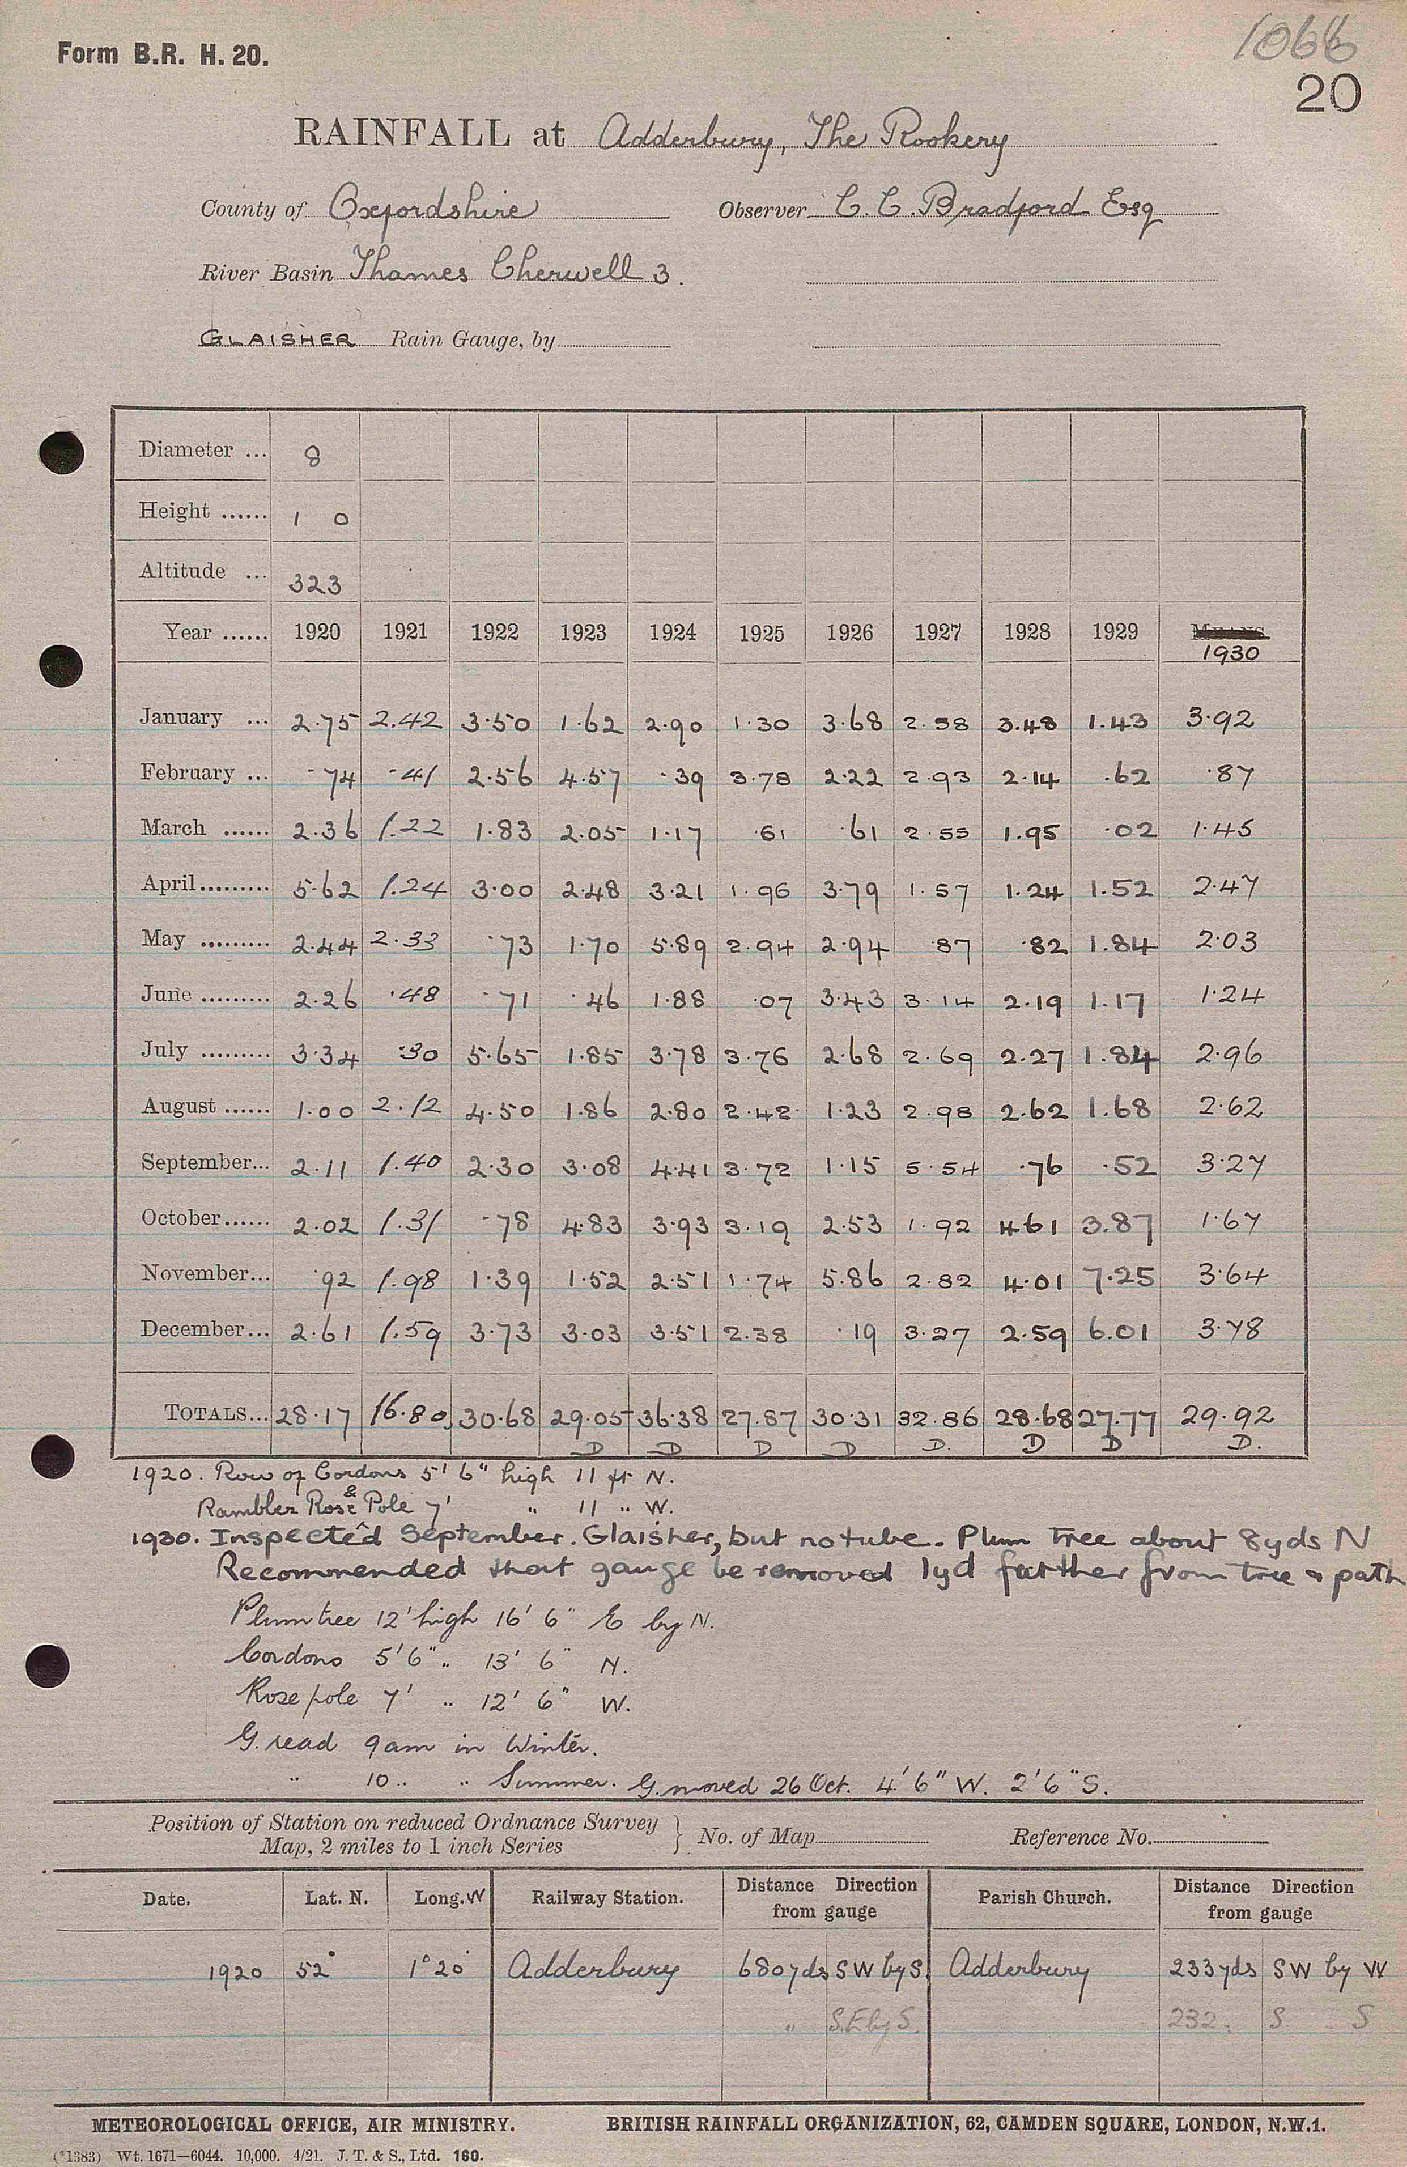 1066
Form B.R. H. 20.
20
RAINFALL at Adderbury, The Rookery
County of Oxfordshire Observer C. C. Bradford Esq
River Basin Thames Cherwell 3.
GLAISHER Rain Gauge, by
Diameter ... 8
Height ...... 1 0
Altitude ... 323
Year ...... 1920 1921 1922 1923 1924 1925 1926 1927 1928 1929 MEANS
1930
January ... 2.75 2.42 3.50 1.62 2.90 1.30 3.68 2.58 3.48 1.43 3.92
February ... .74 .41 2.56 4.57 .39 3.78 2.22 2.93 2.14 .62 .87
March ...... 2.36 1.22 1.83 2.05 1.17 .61 .61 2.55 1.95 .02 1.45
April......... 5.62 1.24 3.00 2.48 3.21 1.96 3.79 1.57 1.24 1.52 2.47
May ......... 2.44 2.33 .73 1.70 5.89 2.94 2.94 .87 .82 1.84 2.03
June ......... 2.26 .48 .71 .46 1.88 .07 3.43 3.14 2.19 1.17 1.24
July ......... 3.34 .30 5.65 1.85 3.78 3.76 2.68 2.69 2.27 1.84 2.96
August ...... 1.00 2.12 4.50 1.86 2.80 2.42 1.23 2.98 2.62 1.68 2.62
September... 2.11 1.40 2.30 3.08 4.41 3.72 1.15 5.54 .76 .52 3.27
October...... 2.02 1.31 .78 4.83 3.93 3.19 2.53 1.92 4.61 3.87 1.67
November... .92 1.98 1.39 1.52 2.51 1.74 5.86 2.82 4.01 7.25 3.64
December... 2.61 1.59 3.73 3.03 3.51 2.38 .19 3.27 2.59 6.01 3.78
TOTALS... 28.17 16.80 30.68 29.05 36.38 27.87 30.31 32.86 28.68 27.77 29.92
D D D D D. D D D.
1920. Row of Cordons 5' 6" high 11 ft N.
Rambler Rose & Pole 7' " 11 " W.
1930. Inspected September. Glaisher, but no tube. Plum Tree about 8yds N
Recommended that gauge be removed 1yd further from tree & path
Plum tree 12' high 16' 6" E by N.
Cordons 5' 6" " 13' 6" N.
Rose pole 7' " 12' 6" W.
G. read 9am in Winter.
" 10 " " Summer. G. moved 26 Oct. 4' 6" W. 2' 6" S.
Position of Station on reduced Ordnance Survey
Map, 2 miles to 1 inch Series } No. of Map Reference No.
Date. Lat. N. Long. W Railway Station. Distance Direction from gauge Parish Church. Distance Direction from gauge
1920 52° 1° 20' Adderbury 680yds SW by S. Adderbury 233yds SW by W
" S.E by S. 232. S S
METEOROLOGICAL OFFICE, AIR MINISTRY. BRITISH RAINFALL ORGANIZATION, 62, CAMDEN SQUARE, LONDON, N.W.1.
(*1383) Wt. 1671—6044. 10,000. 4/21. J. T. & S., Ltd. 160.